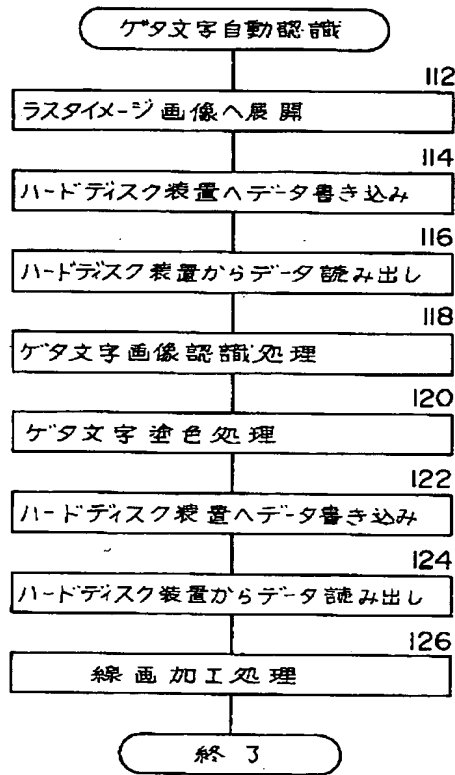 ゲタ文字自動認識
112
ラスタイメージ画像へ展開
114
ハードディスク装置へデータ書き込み
116
ハードディスク装置からデータ読み出し
118
ゲタ文字画像認識処理
120
ゲタ文字塗色処理
122
ハードディスク装置へデータ書き込み
124
ハードディスク装置からデータ読み出し
126
線画加工処理
終了